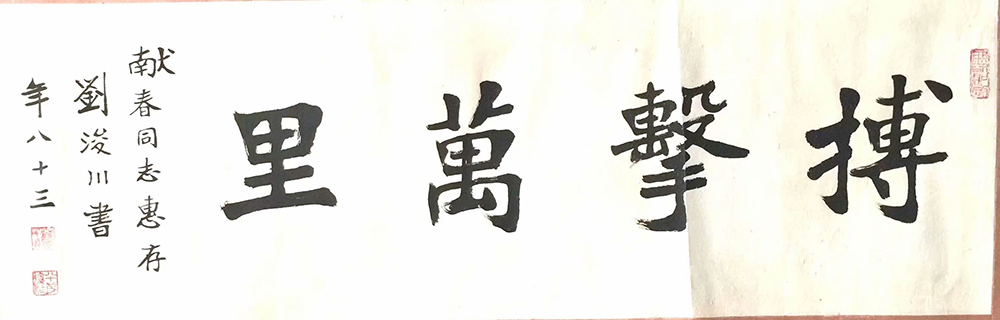 搏擊萬里
献春同志惠存
劉浚川書
年八十三